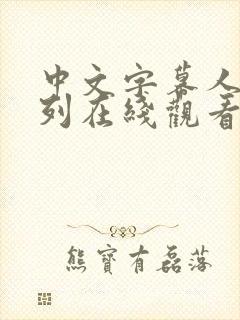 中文字幕人
列在綫觀看
熊寶有磊落